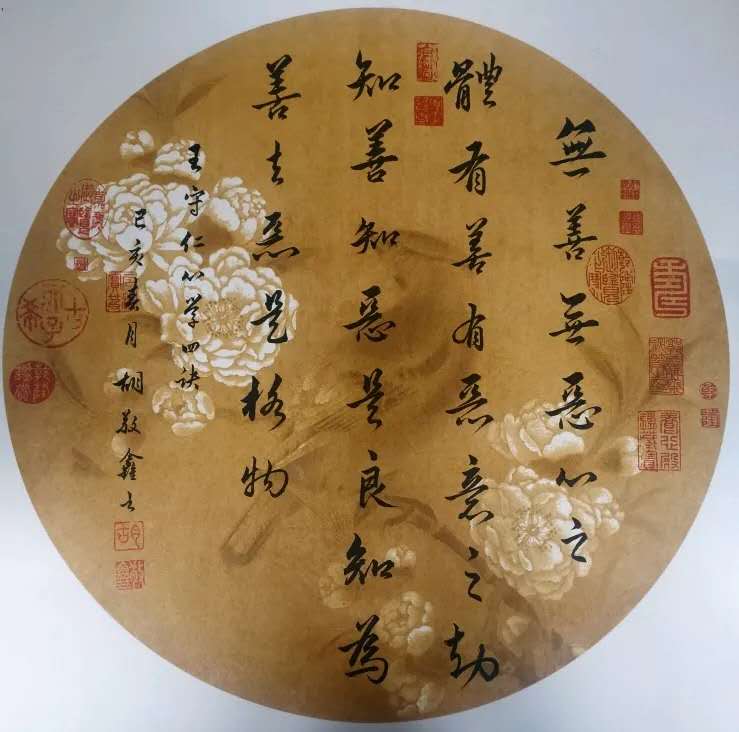 無善無惡心之
體有善有惡意之動
知善知惡是良知為
善去惡是格物
王守仁心学四诀
己亥春月胡敬鑫书